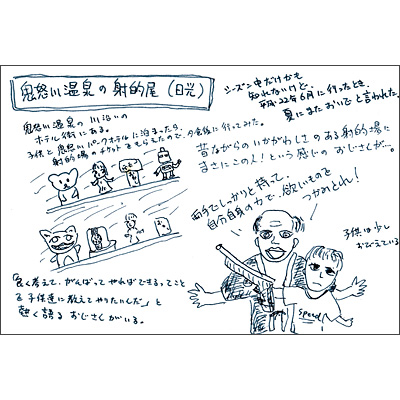 鬼怒川温泉の射的屋（日光）
シーズン中だけかも
知れないけど、
平成22年6月に行ったとき、
夏にまたおいでと言われた。
鬼怒川温泉の川沿いの
ホテル街にある。
子供と鬼怒川パークホテルに泊まったら、
射的場のチケットをもらえたので、夕食後に行ってみた。
昔ながらのいかがわしさのある射的場に
まさにこの人！という感じのおじさんが…。
両手でしっかりと持って、
自分自身の力で、欲しいものを
つかみとれ！
子供は少し
おびえている
speed
「良く考えて、がんばってやればできるってこと
を子供達に教えてやりたいんだ」と
熱く語るおじさんがいる。